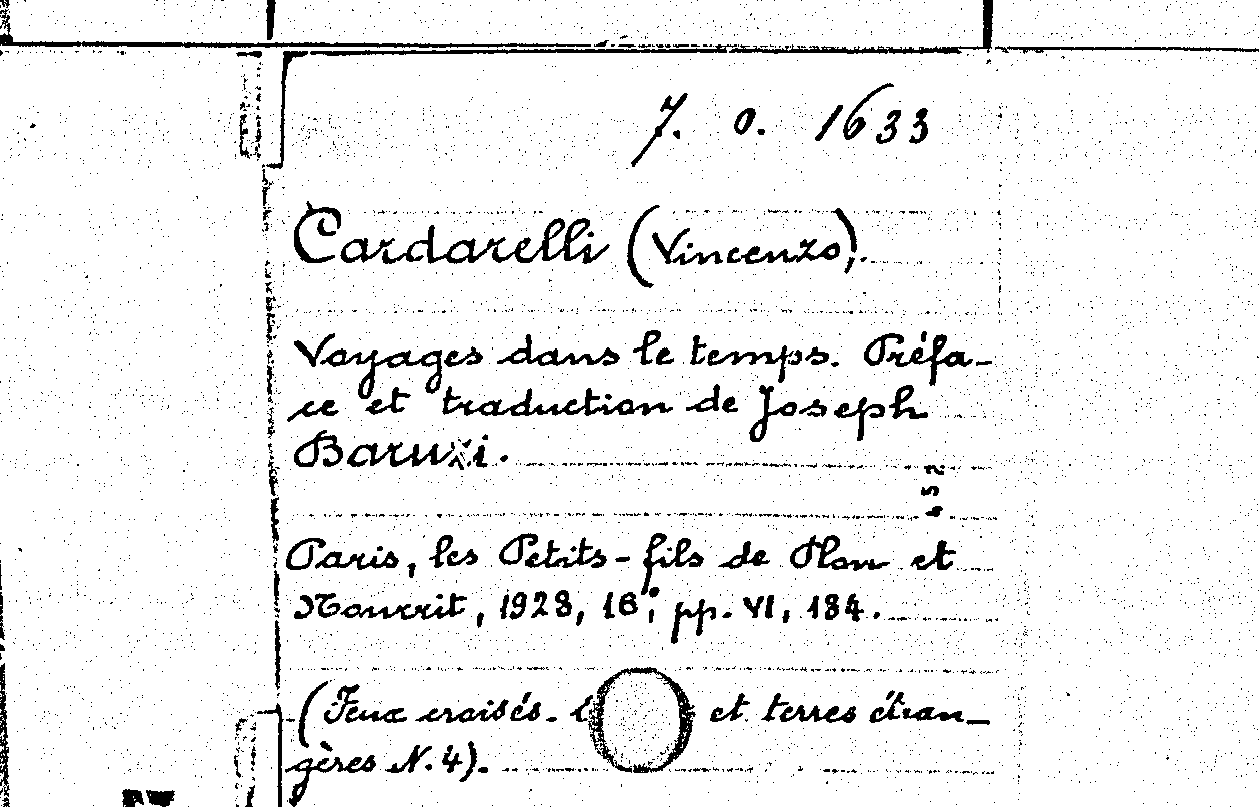 7. o. 1633
Cardarelli (Vincenzo).
Voyages dans le temps. Préfa-
ce et traduction de Joseph
Baruzi.
Paris, les Petits-fils de Plon et
Nourrit, 1928, 16°, pp. VI, 184.
(Feux croisés. et terres étran-
gères N. 4).